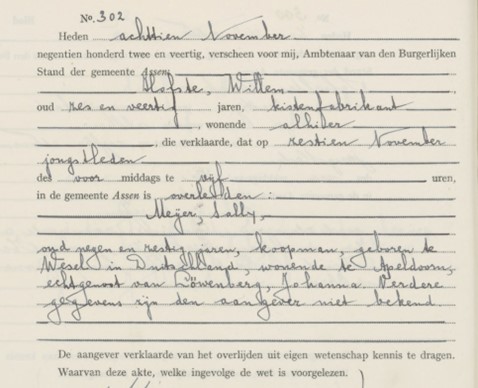 No. 302
Heden achttien November
negentien honderd twee en veertig, verscheen voor mij, Ambtenaar van den Burgerlijken
Stand der gemeente Assen,
Slofste, Willem
oud zes en veertig jaren, kistenfabrikant
, wonende alhier
, die verklaarde, dat op zestien November
jongstleden
des voor middags te vijf uren,
in de gemeente Assen is overleden:
Meijer, Sally,
oud negen en zestig jaren, koopman, geboren te
Wesel in Duitschland, wonende te Apeldoorn,
echtgenoot van Löwenberg, Johanna. Verdere
gegevens zijn den aangever niet bekend.
De aangever verklaarde van het overlijden uit eigen wetenschap kennis te dragen.
Waarvan deze akte, welke ingevolge de wet is voorgelezen.